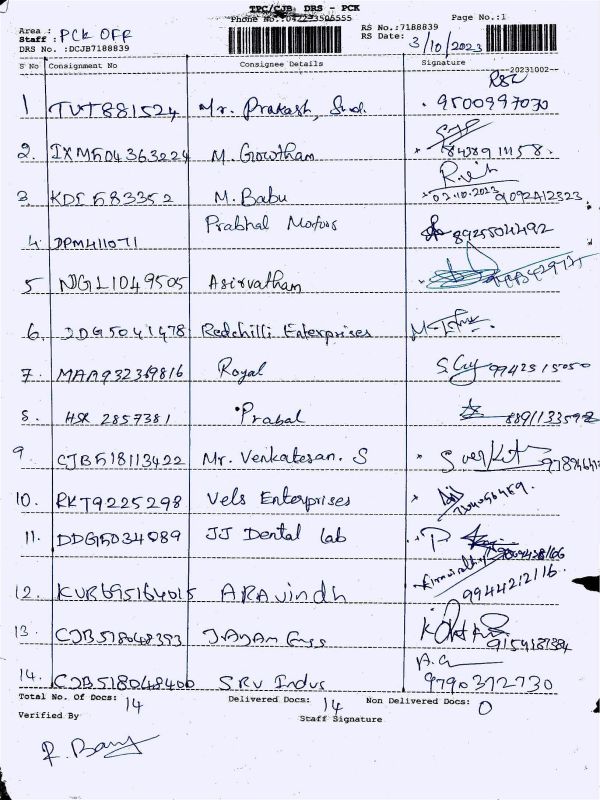 TPC/CJB DRS - PCK
Phone No.:04223506555 Page No.:1
Area : PCK OFF
Staff : RS No.:7188839
DRS No. :DCJB7188839 RS Date: 3/10/2023
S No Consignment No Consignee Details Signature
20231002
1 TVT881524 Mr. Prakash, 9500997030
2. IXM504363224 M. Gowtham
3 KDI583352 M. Babu 02.10.2023 9092412323
4. DPM411071 Prabhal Motors 8925504492
5 NGL1049505 Asirvatham
6. JDG5041478 Redchilli Enterprises
7. MAA932369816 Royal 9942515050
8. HSR 2857381 Prabal
9 CJB518113422 Mr. Venkatesan. S
10. RKT9225298 Vels Enterprises
11. DDG15034089 JJ Dental lab
12. KUR695164015 ARAvindh 9944212116.
13. CJB518048393 JAYAM
14. CJB518048400 SRV Indus 9790372730
Total No. Of Docs: 14 Delivered Docs: 14 Non Delivered Docs: 0
Verified By Staff Signature